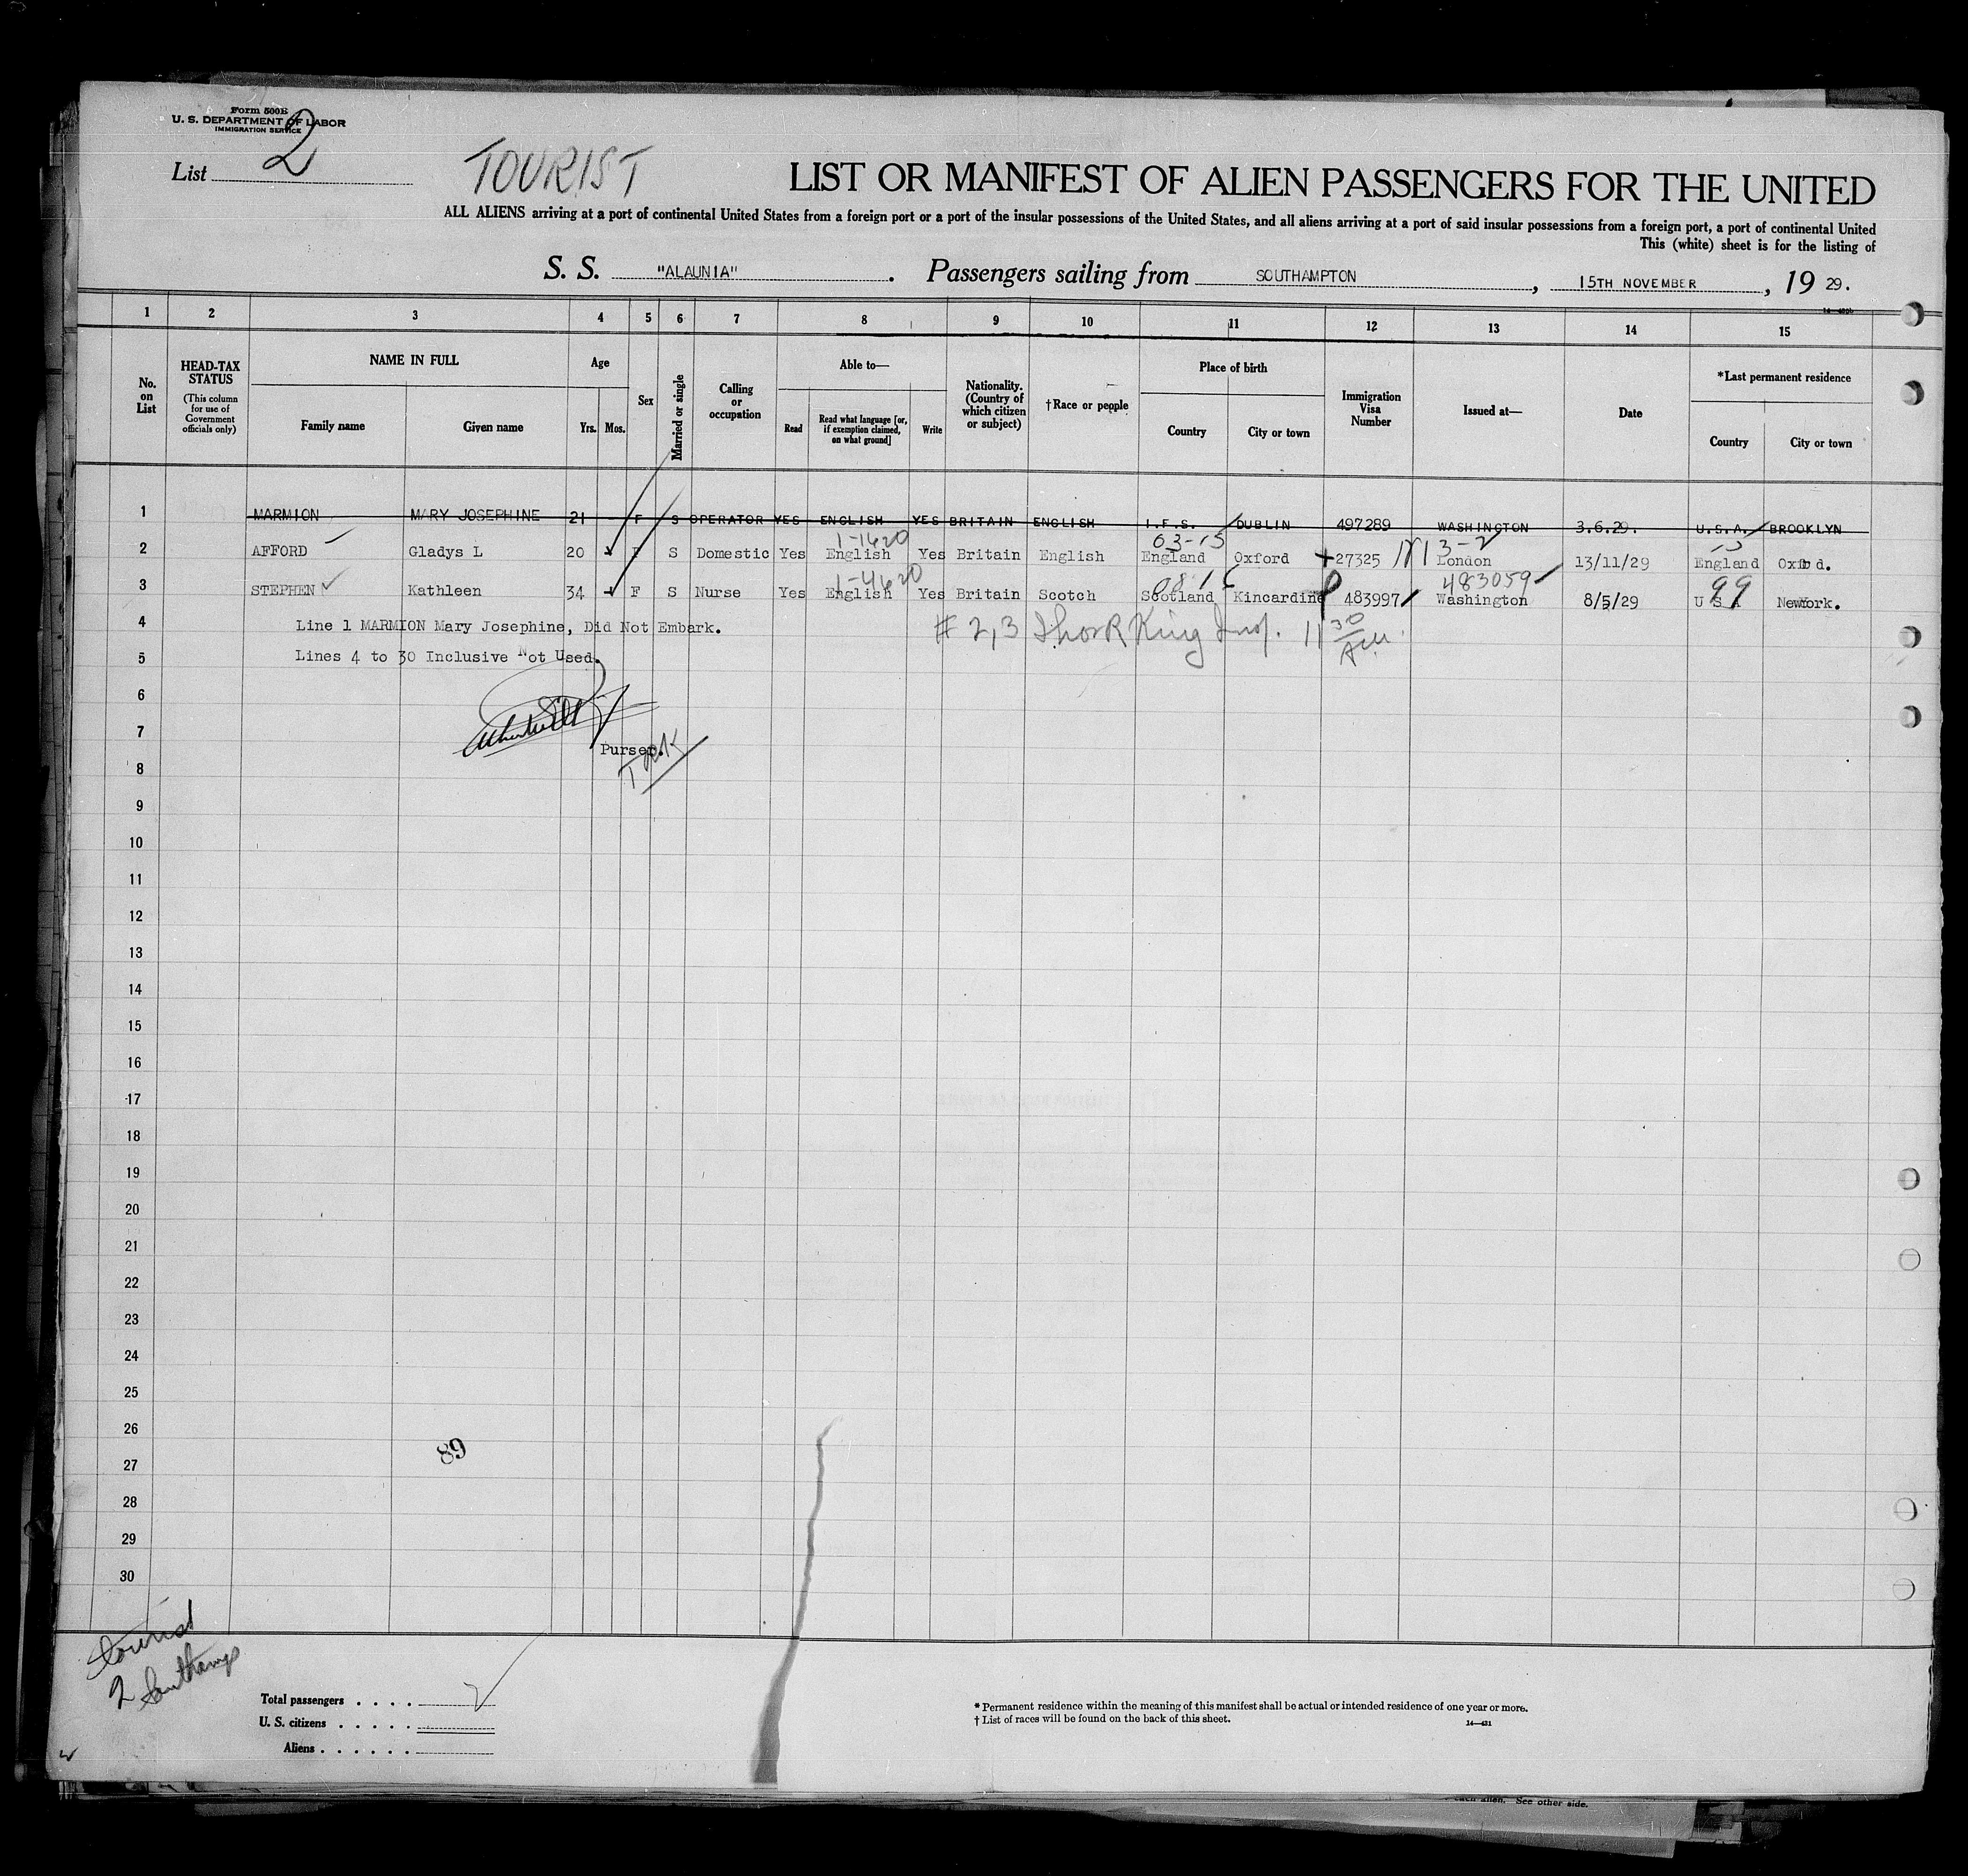 Form 500B
U. S. DEPARTMENT OF LABOR
IMMIGRATION SERVICE
List 2
TOURIST
LIST OR MANIFEST OF ALIEN PASSENGERS FOR THE UNITED
ALL ALIENS arriving at a port of continental United States from a foreign port or a port of the insular possessions of the United States, and all aliens arriving at a port of said insular possessions from a foreign port, a port of continental United
This (white) sheet is for the listing of
S. S. "ALAUNIA". Passengers sailing from SOUTHAMPTON, 15TH NOVEMBER, 19 29.
1 2 3 4 5 6 7 8 9 10 11 12 13 14 15
No. on List
HEAD-TAX STATUS
(This column for use of Government officials only)
NAME IN FULL
Family name Given name
Age
Yrs. Mos.
Sex
Married or single
Calling or occupation
Able to—
Read Read what language [or, if exemption claimed, on what ground] Write
Nationality. (Country of which citizen or subject)
†Race or people
Place of birth
Country City or town
Immigration Visa Number
Issued at—
Date
*Last permanent residence
Country City or town
1 MARMION MARY JOSEPHINE 21 F S OPERATOR YES ENGLISH YES BRITAIN ENGLISH I.F.S. DUBLIN 497289 WASHINGTON 3.6.29. U.S.A. BROOKLYN
1-1620 03-15 3-2
2 AFFORD Gladys L 20 F S Domestic Yes English Yes Britain English England Oxford 27325 London 13/11/29 England
1-4620 483059 99
3 STEPHEN Kathleen 34 F S Nurse Yes English Yes Britain Scotch Scotland Kincardine 483997 Washington 8/5/29 U S A
4 Line 1 MARMION Mary Josephine, Did Not Embark. # 2,3 King Insp. 11 30 AM.
5 Lines 4 to 30 Inclusive Not Used.
6
7 Purser.
8
9
10
11
12
13
14
15
16
17
18
19
20
21
22
23
24
25
26
89
27
28
29
30
tourist
2 Southamp
Total passengers . . . . 2
U. S. citizens . . . . .
Aliens . . . . . .
* Permanent residence within the meaning of this manifest shall be actual or intended residence of one year or more.
† List of races will be found on the back of this sheet.
14—431
each alien. See other side.